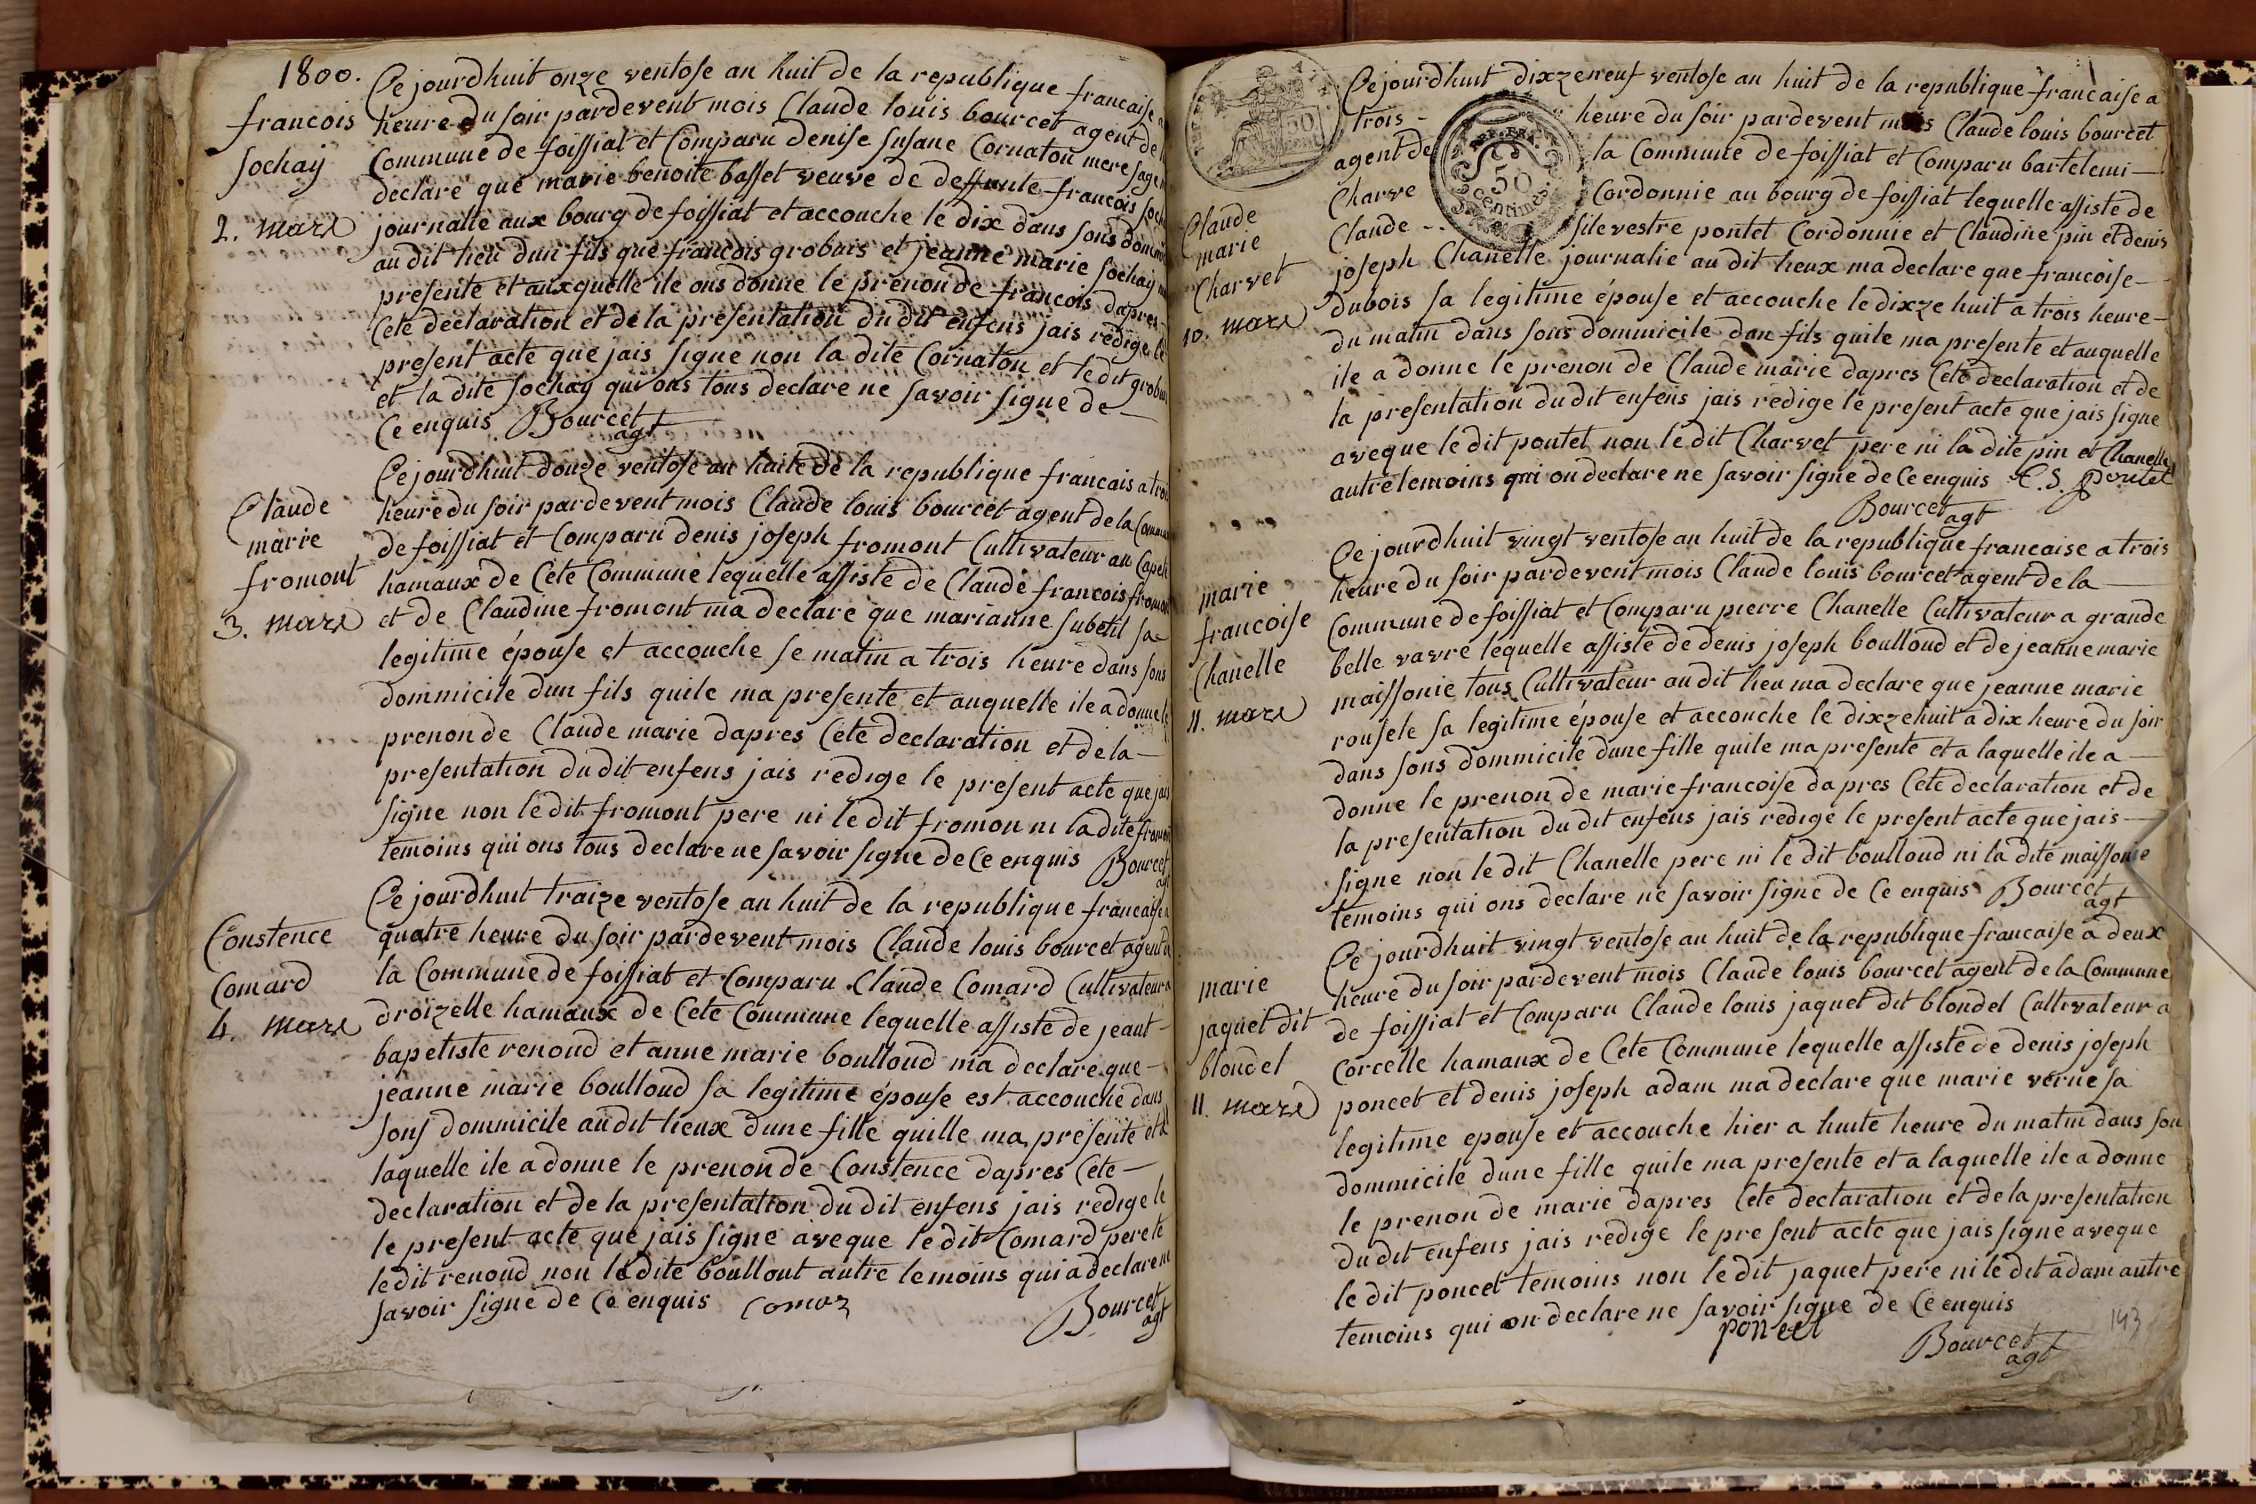 1800.
francois
sochay
2. mars
Ce jourdhuit onze ventose an huit de la republique francaise a
heure du soir pardevent mois Claude louis bourcet agent de
Commune de foissiat et Comparu denise susane Cornaton mere sage
declare que marie benoite basset veuve de deffunte francois soch
journalie aux bourg de foissiat et accouche le dix dans sons dommi
au dit lieu dun fils que francois grobuis et jeanne marie sochay
presente et auxquelle ile ons donne le prenon de francois dapres
Cete declaration et de la presentation du dit enfens jais redige le
present acte que jais signe non la dite Cornaton et le dit grobui
et la dite sochay qui ons tous declare ne savoir signe de
Ce enquis Bourcet
agt
Claude
marie
fromont
3. mars
Ce jourdhuit douze ventose an huite de la republique francais a troi
heure du soir pardevent mois Claude louis bourcet agent de la Commu
de foissiat et Comparu denis joseph fromont Cultivateur au Capet
hamaux de Cete Commune lequelle assiste de Claude francois fromon
et de Claudine fromont ma declare que marianne subtil sa
legitime épouse et accouche se matin a trois heure dans sons
dommicile dun fils quile ma presente et auquelle ile a donne le
prenon de Claude marie dapres Cete declaration et de la
presentation du dit enfens jais redige le present acte que jais
signe non le dit fromont pere ni le dit fromon ni la dite fromon
temoins qui ons tous declare ne savoir signe de Ce enquis Bourcet
agt
Constence
Comard
4. mars
Ce jourdhuit traize ventose an huit de la republique francaise a
quatre heure du soir pardevent mois Claude louis bourcet agent d
la Commune de foissiat et Comparu Claude Comard Cultivateur a
droizelle hamaux de Cete Commune lequelle assiste de jeant
bapetiste renoud et anne marie boulloud ma declare que
jeanne marie boulloud sa legitime épouse est accouche dans
sons dommicile au dit lieux dune fille quille ma presente et a
laquelle ile a donne le prenon de Constence dapres Cete
declaration et de la presentation du dit enfens jais redige le
le present acte que jais signe aveque le dit Comard pere le
le dit renoud non la dite boullout autre temoins qui a declare ne
savoir signe de Ce enquis Comar Bourcet
agt
Claude
marie
Charvet
10. mars
50
centimes
Ce jourdhuit dixzeneuf ventose an huit de la republique francaise a
trois heure du soir pardevent mois Claude louis bourcet
agent de la Commune de foissiat et Comparu bartelemi
Charve Cordonnie au bourg de foissiat lequelle assiste de
Claude silevestre pontet Cordonnie et Claudine pin et denis
joseph Chanelle journalie au dit lieux ma declare que francoise
dubois sa legitime épouse et accouche le dixze huit a trois heure
du matin dans sons dommicile dun fils quile ma presente et auquelle
ile a donne le prenon de Claude marie dapres Cete declaration et de
la presentation du dit enfens jais redige le present acte que jais signe
aveque le dit pontet non le dit Charvet pere ni la dite pin et Chanelle
autre temoins qui on declare ne savoir signe de Ce enquis C. S. Pontet
Bourcet
agt
marie
francoise
Chanelle
11. mars
Ce jourdhuit vingt ventose an huit de la republique francaise a trois
heure du soir pardevent mois Claude louis bourcet agent de la
Commune de foissiat et Comparu pierre Chanelle Cultivateur a grande
belle vavre lequelle assiste de denis joseph boulloud et de jeanne marie
maissonie tous Cultivateur au dit lieu ma declare que jeanne marie
rousele sa legitime épouse et accouche le dixzehuit a dix heure du soir
dans sons dommicile dune fille quile ma presente et a laquelle ile a
donne le prenon de marie francoise dapres Cete declaration et de
la presentation du dit enfens jais redige le present acte que jais
signe non le dit Chanelle pere ni le dit boulloud ni la dite maissonie
temoins qui ons declare ne savoir signe de Ce enquis Bourcet
agt
marie
jaquet dit
blondel
11. mars
Ce jourdhuit vingt ventose an huit de la republique francaise a deux
heure du soir pardevent mois Claude louis bourcet agent de la Commune
de foissiat et Comparu Claude louis jaquet dit blondel Cultivateur a
Corcelle hamaux de Cete Commune lequelle assiste de denis joseph
poncet et denis joseph adam ma declare que marie verne sa
legitime epouse et accouche hier a huite heure du matin dans son
dommicile dune fille quile ma presente et a laquelle ile a donne
le prenon de marie dapres Cete declaration et de la presentation
du dit enfens jais redige le present acte que jais signe aveque
le dit poncet temoins non le dit jaquet pere ni le dit adam autre
temoins qui on declare ne savoir signe de Ce enquis
poncet Bourcet
agt
143